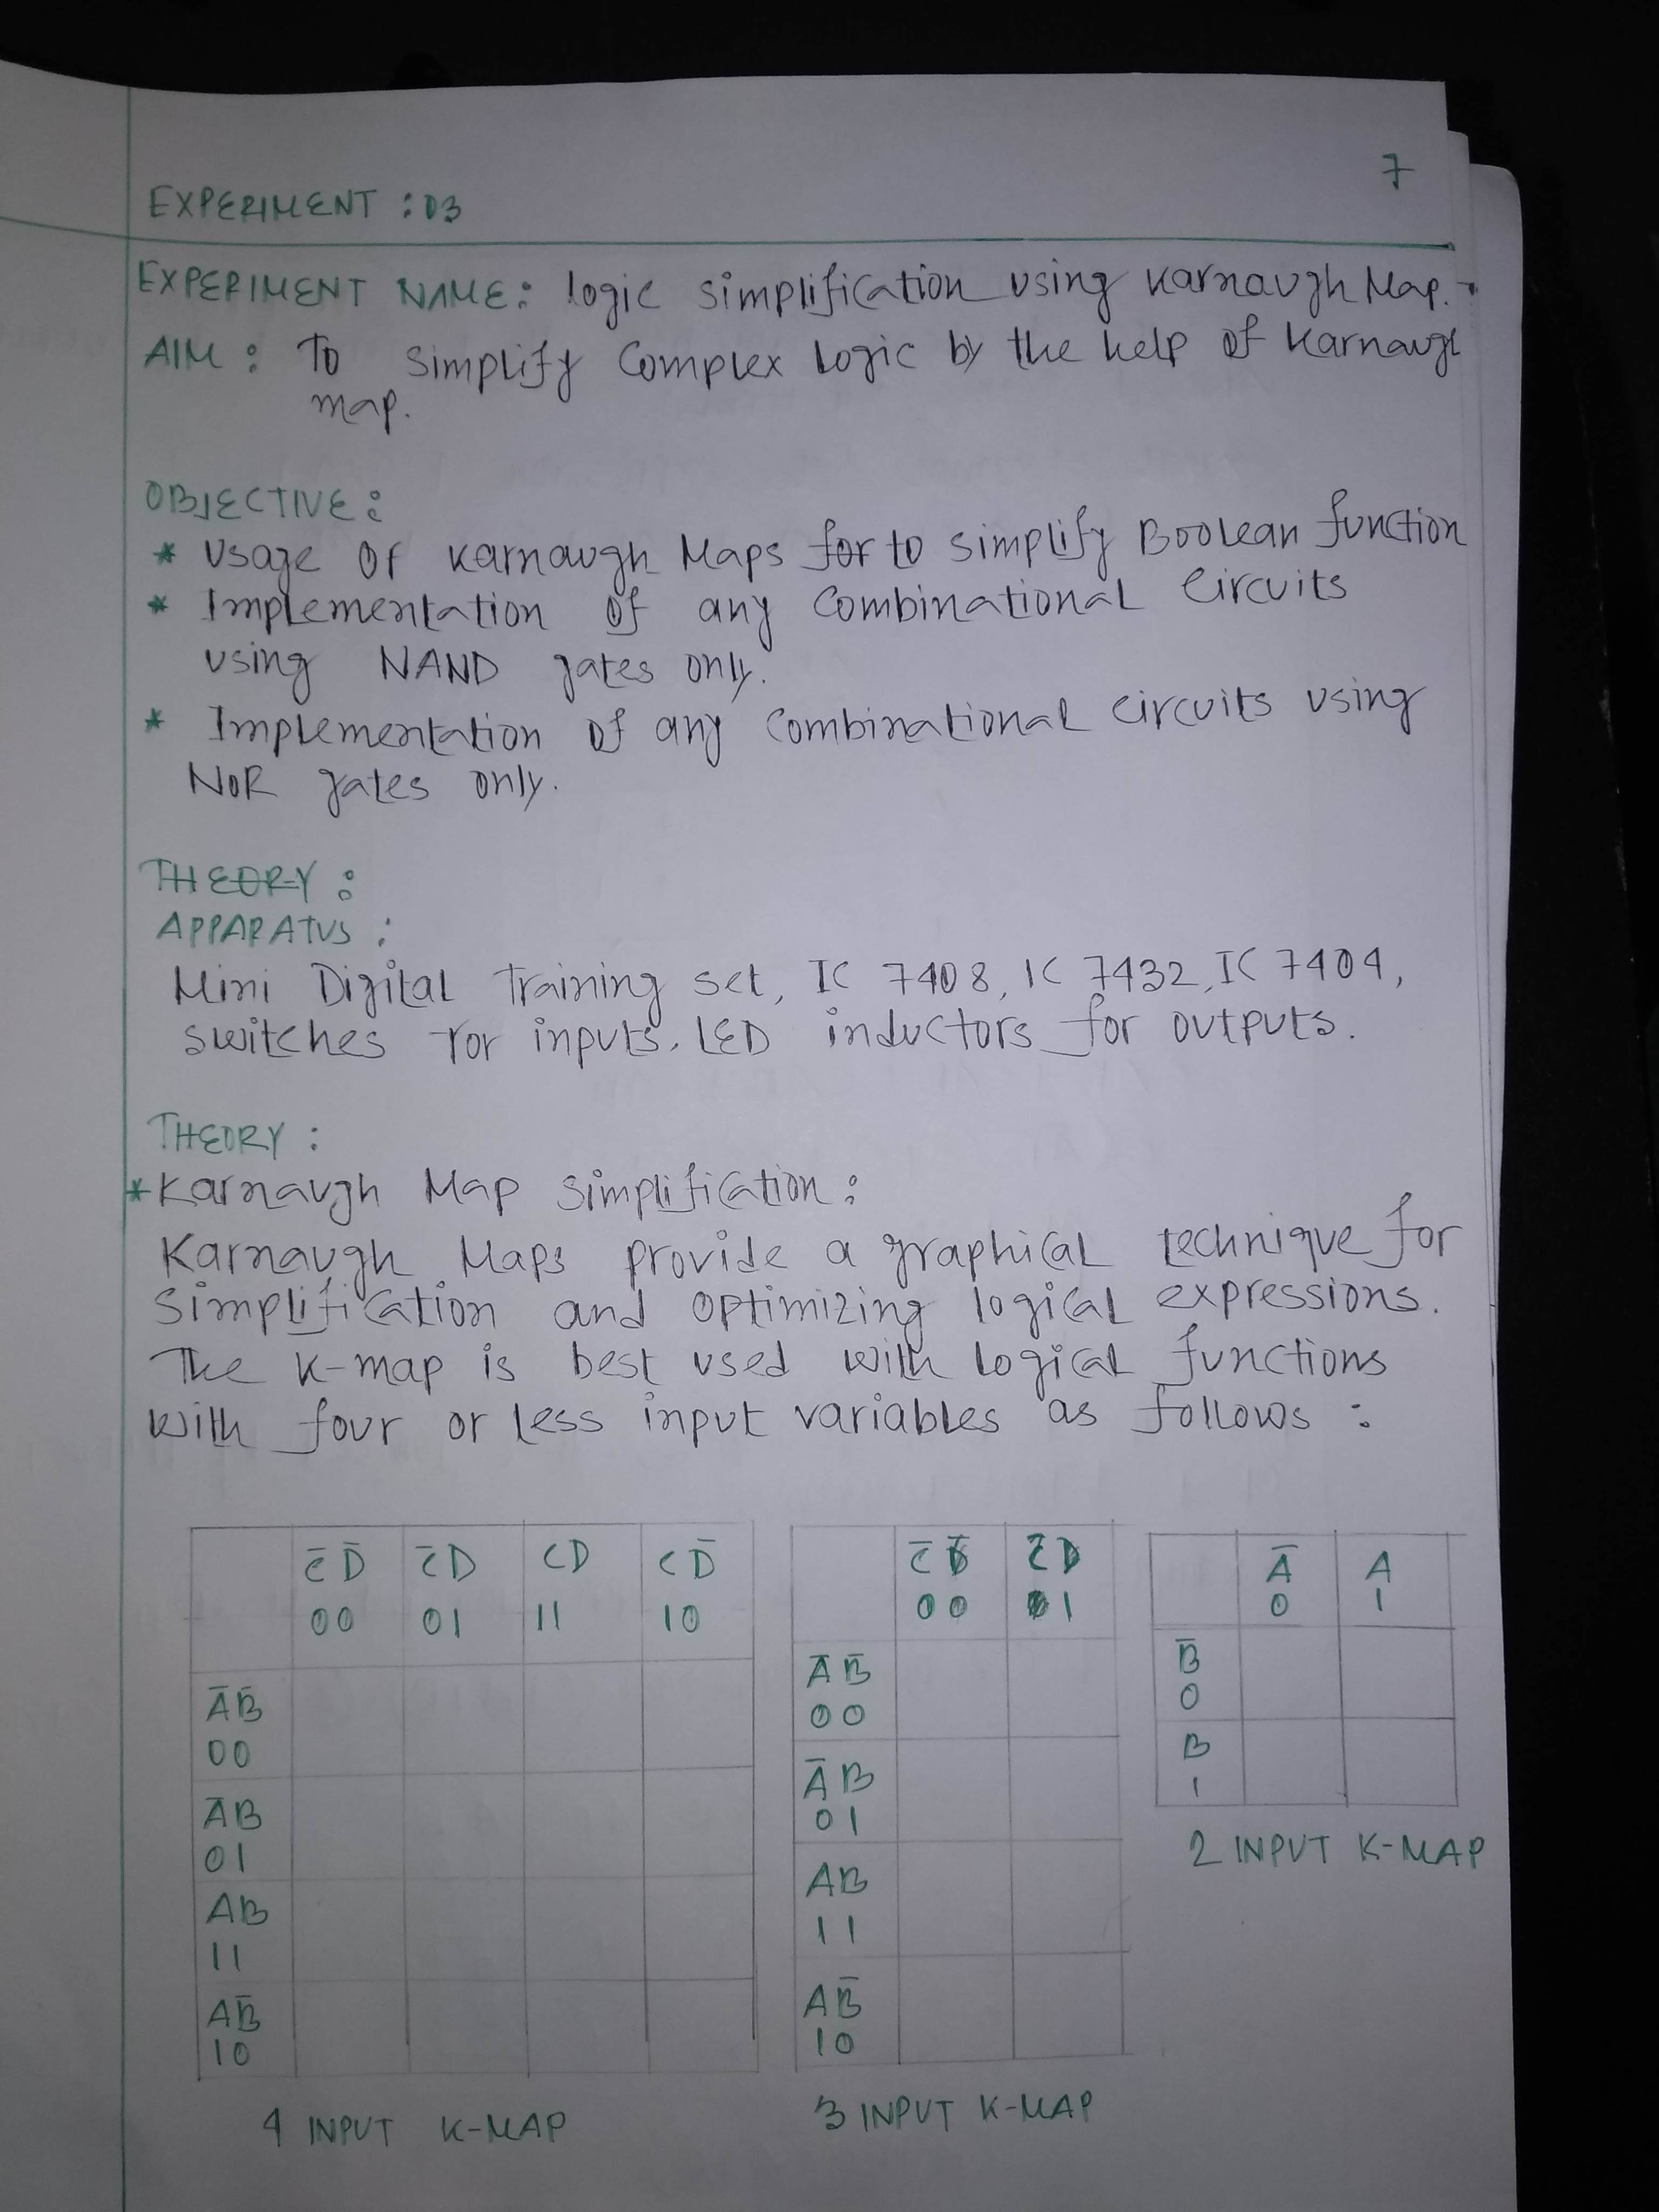 7
EXPERIMENT : 03
EXPERIMENT NAME: Logic simplification using Karnaugh Map.
AIM : To simplify Complex Logic by the help of Karnaugh
map.
OBJECTIVE :
* Usage of Karnaugh Maps for to simplify Boolean function
* Implementation of any Combinational Circuits
using NAND gates only.
* Implementation of any Combinational circuits using
NOR gates only.
THEORY :
APPARATUS :
Mini Digital Training set, IC 7408, IC 7432, IC 7404,
switches for inputs, LED inductors for outputs.
THEORY :
* Karnaugh Map Simplification :
Karnaugh Maps provide a graphical technique for
simplification and optimizing logical expressions.
The K-map is best used with logical functions
with four or less input variables as follows :
C̅ D̅ C̅ D CD C D̅
00 01 11 10
A̅ B̅
00
A̅ B
01
AB
11
A B̅
10
4 INPUT K-MAP
C̅
00 1
A̅ B̅
00
A̅ B
01
AB
11
A B̅
10
3 INPUT K-MAP
A̅ A
0 1
B̅
0
B
1
2 INPUT K-MAP